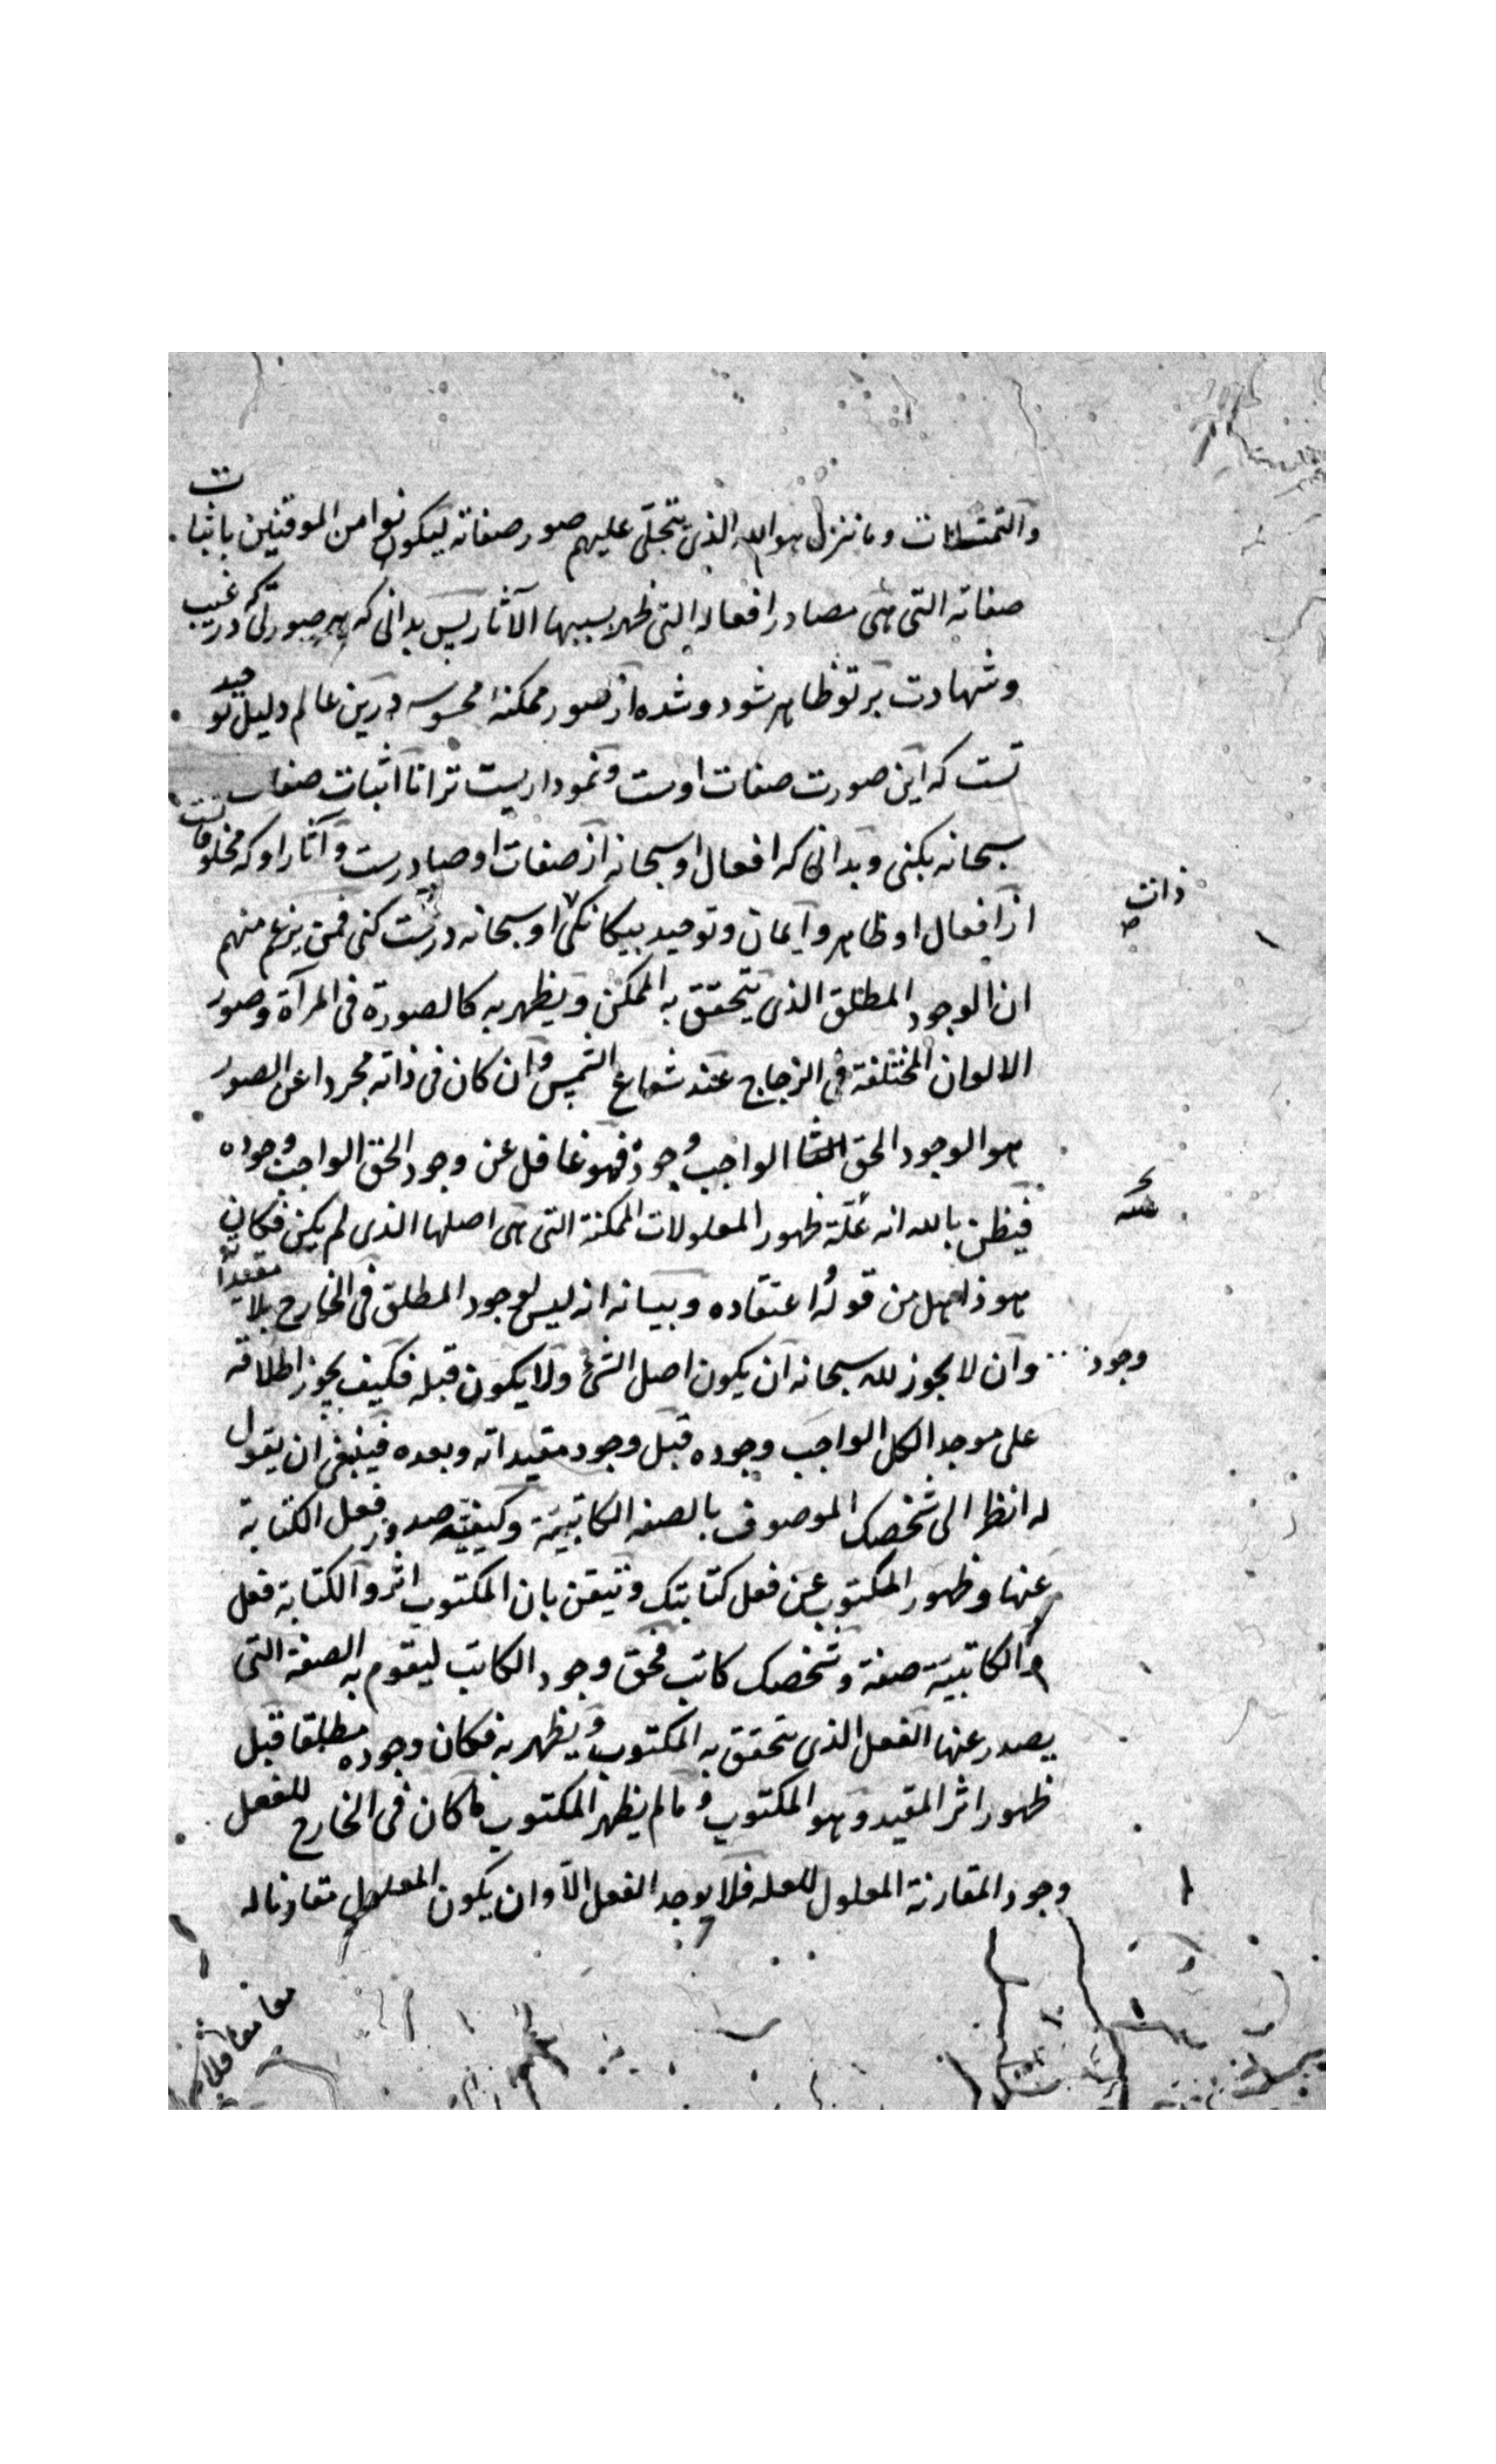 والتمثلات وما تنزل هو الله الذی يتجلی عليهم صور صفاته ليكونوا من الموقنين باثبات
صفاته التی هی مصادر افعاله التی ظهر بسببها الآثار پس بدانی كه هر صورتی كه در غيب
وشهادت بر تو ظاهر شود و شده از صور ممكنهٔ محسوسه درين عالم دليل توحيد
تست كه اين صورت صفات اوست و نموداريست ترا تا اثبات صفات
سبحانه بكنی و بدانی كه افعال او سبحانه از صفات او صادرست و آثار او كه مخلوقاتست
از افعال او ظاهر و ايمان و توحيد بيكانكی او سبحانه درست كنی فمن يزعم منهم
ذات
ان الوجود المطلق الذی يتحقق به الممكن و يظهر به كالصورة فی المرآة وصور
الالوان المختلفة فی الزجاج عند شعاع الشمس وان كان فی ذاته مجردا عن الصور
هو الوجود الحق الواجب وجوده فهو غافل عن وجود الحق الواجب وجوده
فيظن بالله انه علة ظهور المعلولات الممكنة التی هی اصلها الذی لم يكن فكان
هو ذاهل من قوله اعتقاده وبيانه انه ليس لوجود المطلق فی الخارج بلا مقيد
وجود
وان لا يجوز لله سبحانه ان يكون اصل الشئ ولا يكون قبله فكيف يجوز اطلاقه
علی موجد الكل الواجب وجوده قبل وجود مقيداته وبعده فينبغی ان يقول
له انظر الی شخصك الموصوف بالصفه الكاتبية وكيفية صدور فعل الكتابة
عنها وظهور المكتوب عن فعل كتابتك وتيقن بان المكتوب اثر والكتابة فعل
والكاتبية صفة وشخصك كاتب فحق وجود الكاتب ليقوم به الصفة التی
يصدر عنها الفعل الذی يتحقق به المكتوب ويظهر به فكان وجوده مطلقا قبل
ظهور اثر المقيد وهو المكتوب وما لم يظهر المكتوب ما كان فی الخارج للفعل
وجود المقارنة المعلول للعله فلا يوجد الفعل الا وان يكون المعلول مقارنا له